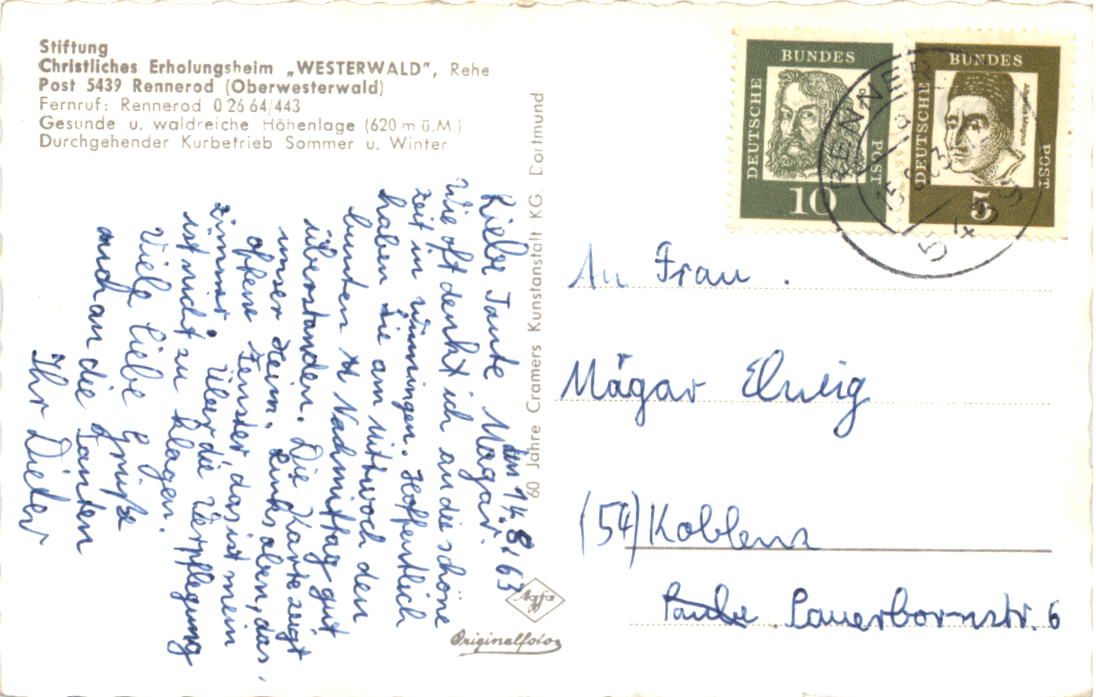 Stiftung
Christliches Erholungsheim „WESTERWALD”, Rehe
Post 5439 Rennerod (Oberwesterwald)
Fernruf: Rennerod 0 26 64/443
Gesunde u. waldreiche Höhenlage (620 m ü. M.)
Durchgehender Kurbetrieb Sommer u. Winter
den 14.8.63
Liebe Tante Magar.
Wie oft denkt ich an die schöne
Zeit in Winningen. Hoffentlich
haben Sie am Mittwoch den
bunten Nachmittag gut
überstanden. Die Karte zeigt
unser Heim. Links oben, das
offene Fenster, das ist mein
Zimmer. Über die Verpflegung
ist nicht zu klagen.
Viele liebe Grüße
auch an die Tanten
Ihr Dieter
60 Jahre Cramers Kunstanstalt KG. Dortmund
Agfa
Originalfoto
DEUTSCHE BUNDES POST
10
DEUTSCHE BUNDES POST
5
RENNEROD
5439
An Frau
Mägar Elweig
(54) Koblenz
Sauerbornstr. 6